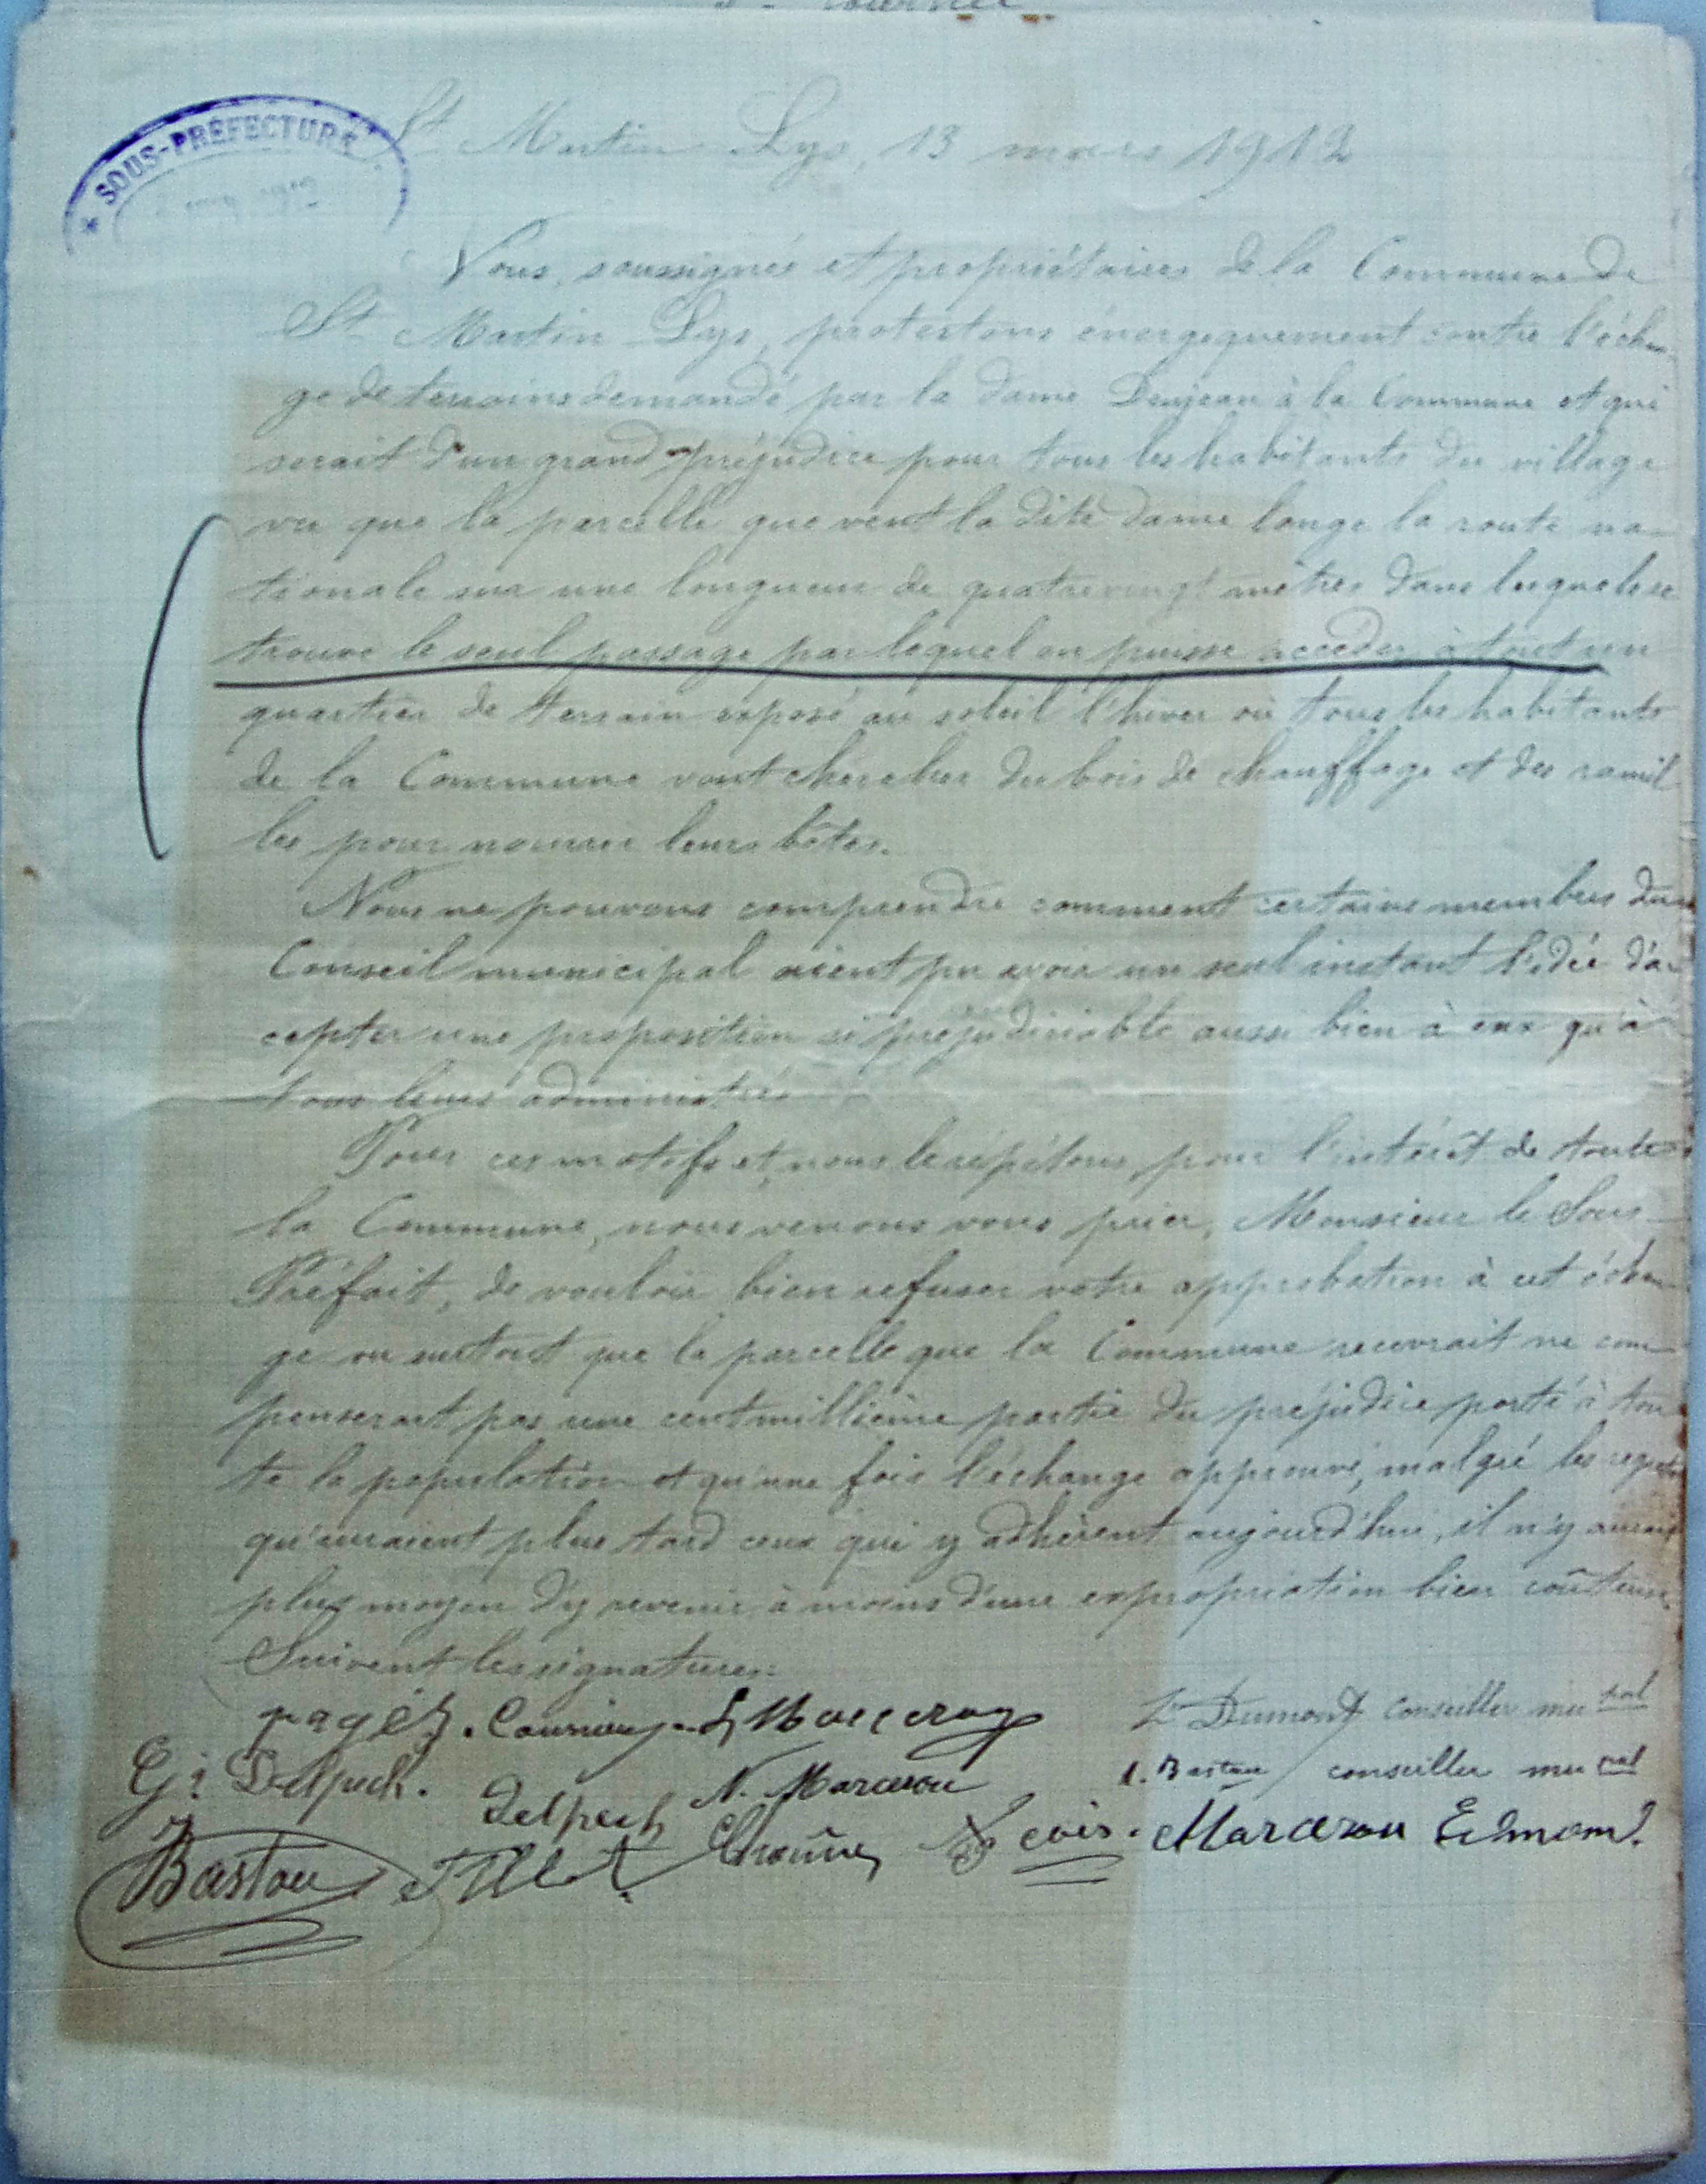 SOUS-PRÉFECTURE
St Martin Lys, 13 mars 1912
Nous, soussignés et propriétaires de la Commune de
St Martin Lys, protestons énergiquement contre l'échan
ge de terrains demandé par la dame Denjean à la Commune et qui
serait d'un grand préjudice pour tous les habitants du village
vu que la parcelle que veut la dite dame longe la route na-
tionale sur une longueur de quatre vingt mètres dans lesquels se
trouve le seul passage par lequel on puisse accéder à tout un
quartier de terrain exposé au soleil l'hiver où tous les habitants
de la Commune vont chercher du bois de chauffage et des ramil
les pour nourrir leurs bêtes.
Nous ne pouvons comprendre comment certains membres du
Conseil municipal aient pu avoir un seul instant l'idée d'ac
cepter une proposition si préjudiciable aussi bien à eux qu'à
tous leurs administrés
Pour ces motifs et, nous le répétons, pour l'intérêt de toute
la Commune, nous venons vous prier, Monsieur le Sous-
Préfait, de vouloir bien refuser votre approbation à cet échan
ge vu surtout que la parcelle que la Commune recevrait ne com-
penserait pas une centmillième partie du préjudice porté à tou
te la population et qu'une fois l'échange approuvé, malgré les regrets
qu'auraient plus tard ceux qui y adhèrent aujourd'hui, il n'y aurait
plus moyen d'y revenir à moins d'une expropriation bien coûteuse.
Suivent les signatures:
pagés. L Marceroy Dumont conseiller mupal
G. Delpech. Delpech N. Marcerou Bastou conseiller mupal
Bastou Marcerou Edmond